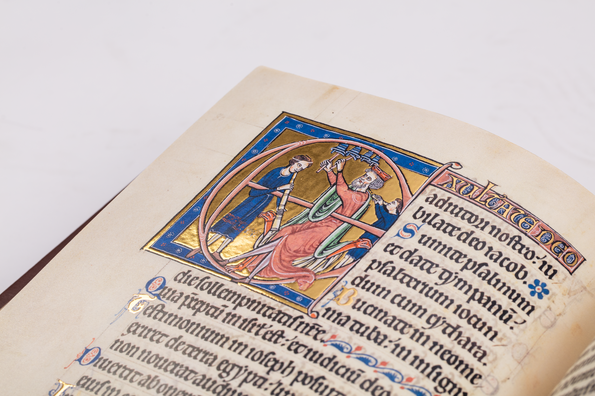 xultate deo
adiutori nostro: iu
bilate deo iacob.
Sumite psalmum
et date tympanu
psalterium iocun
dum cum cythara
Bucinate in neome
nia tuba: in insigni
die sollempnitatis vestre
Quia in isrl est: et iudicium deo
Testimonium in ioseph posuit
exiret de terra egypti
non noverat
Divertit ab